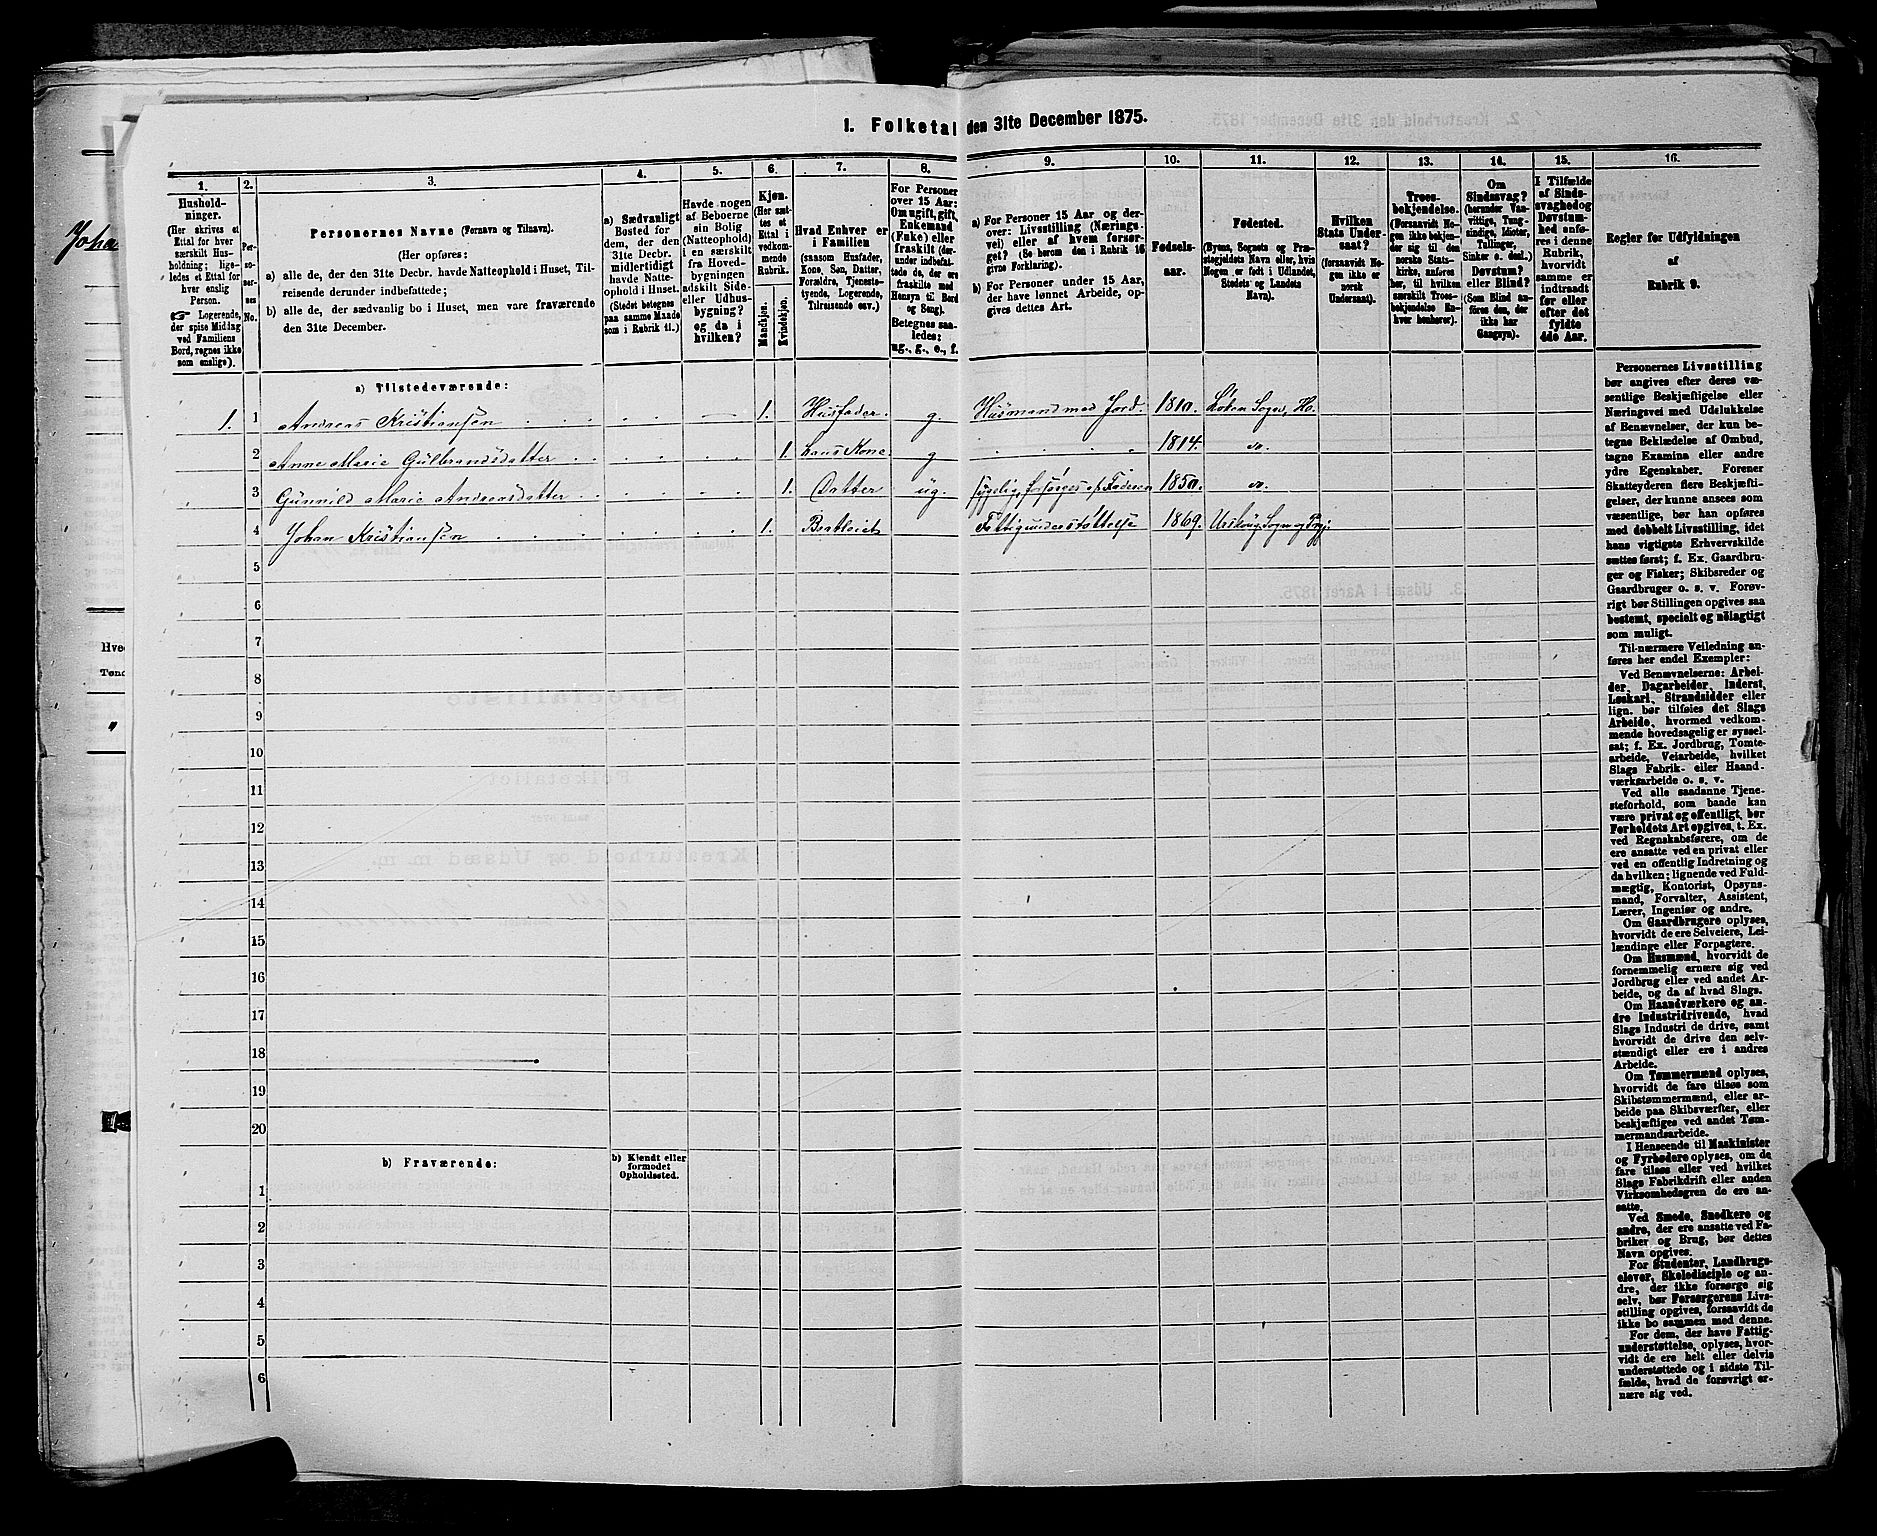 1. Folketal den 31te December 1875.
1.
2.
3.
4.
5.
6.
7.
8.
9.
10.
11.
12.
13.
14.
15.
16.
Hushold-
ninger.
(Her skrives et
Ettal for hver
særskilt Hus-
holdning; lige-
ledes et Ettal for
hver enslig
Person.
☞ Logerende,
der spise Middag
ved Familiens
Bord, regnes ikke
som enslige).
Per-
so-
ner-
nes
No.
Personernes Navne (Fornavn og Tilnavn).
(Her opføres:
a) alle de, der den 31te Decbr. havde Natteophold i Huset, Til-
reisende derunder indbefattede;
b) alle de, der sædvanlig bo i Huset, men vare fraværende
den 31te December.
a) Sædvanligt
Bosted for
dem, der den
31te Decbr.
midlertidigt
havde Natte-
ophold i Huset.
(Stedet betegnes
paa samme Maade
som i Rubrik 11.)
Havde nogen
af Beboerne
sin Bolig
(Natteophold)
i en særskilt
fra Hoved-
bygningen
adskilt Side-
eller Udhus-
bygning?
og da i
hvilken?
Kjøn.
(Her sæt-
tes et
Ettal i
vedkom-
mende
Rubrik.
Mandkjøn.
Kvindekjøn.
Hvad Enhver er
i Familien
(saasom Husfader,
Kone, Søn, Datter,
Forældre, Tjeneste-
tyende, Logerende,
Tilreisende osv.)
For Personer
over 15 Aar:
Om ugift, gift,
Enkemand
(Enke) eller
fraskilt (der-
under indbefat-
tede de, der ere
fraskilte med
Hensyn til Bord
og Seng).
Betegnes saa-
ledes:
ug., g., e., f.
a) For Personer 15 Aar og der-
over: Livsstilling (Nærings-
vei) eller af hvem forsør-
get? (Se herom den i Rubrik 16
givne Forklaring).
b) For Personer under 15 Aar,
der have lønnet Arbeide, op-
gives dettes Art.
Fødsels-
aar.
Fødested.
(Byens, Sognets og Præ-
stegjeldets Navn eller, hvis
Nogen er født i Udlandet,
Stedets og Landets
Navn).
Hvilken
Stats Under-
saat?
(forsaavidt No-
gen ikke er
norsk
Undersaat).
Troes-
bekjendelse.
(Forsaavidt No-
gen ikke bekjen-
der sig til den
norske Stats-
kirke, anføres
her, til hvilken
særskilt Troes-
bekjendelse En-
hver henhører).
Om
Sindssvag?
(herunder Van-
vittige, Tung-
sindige, Idioter,
Tullinger,
Sinker o. desl.)
Døvstum?
eller Blind?
(Som Blind an-
føres den, der
ikke har
Gangsyn).
I Tilfælde
af Sinds-
svaghed og
Døvstum-
hed anfø-
res i denne
Rubrik,
hvorvidt
samme er
indtraadt
før eller
efter det
fyldte
4de Aar.
Regler for Udfyldningen
af
Rubrik 9.
a) Tilstedeværende:
1. 1 Andreas Kristiansen 1. Husfader g Husmand med Jord. 1810. Løken Sogn, Ho.
2 Anne Marie Gulbrandsdatter 1. hans Kone g 1814. do.
3 Gunnild Marie Andreasdatter 1. Datter ug. sygelig, forsørges af Faderen 1850. do.
4 Johan Kristiansen 1. Fattigunderstøttelse 1869. Urskoug Sogn og Pgj:
5
6
7
8
9
10
11
12
13
14
15
16
17
18
19
20
b) Fraværende:
b) Kjendt eller
formodet
Opholdssted.
1
2
3
4
5
6
Personernes Livsstilling
bør angives efter deres væ-
sentlige Beskjæftigelse eller
Næringsvei med Udelukkelse
af Benævnelser, der kun be-
tegne Beklædelse af Ombud,
tagne Examina eller andre
ydre Egenskaber. Forener
Skatteyderen flere Beskjæfti-
gelser, der kunne ansees som
væsentlige, bør han opføres
med dobbelt Livsstilling, idet
hans vigtigste Erhvervskilde
sættes først; f. Ex. Gaardbru-
ger og Fisker; Skibsreder og
Gaardbruger o. s. v. Forøv-
rigt bør Stillingen opgives saa
bestemt, specielt og nøiagtigt
som muligt.
Til nærmere Veiledning an-
føres her endel Exempler:
Ved Benævnelserne: Arbei-
der, Dagarbeider, Inderst,
Løskarl, Strandsidder eller
lign. bør tilføies det Slags
Arbeide, hvormed vedkom-
mende hovedsagelig er syssel-
sat; f. Ex. Jordbrug, Tomte-
arbeide, Veiarbeide, hvilket
Slags Fabrik- eller Haand-
værksarbeide o. s. v.
Ved alle saadanne Tjene-
steforhold, som baade kan
være privat og offentligt, bør
Forholdets Art opgives, t. Ex.
ved Regnskabsførere, om de
ere ansatte ved en privat eller
ved en offentlig Indretning og
da hvilken; lignende ved Fuld-
mægtig, Kontorist, Opsyns-
mand, Forvalter, Assistent,
Lærer, Ingeniør og andre.
Om Gaardbrugere oplyses,
hvorvidt de ere Selveiere, Lei-
lændinge eller Forpagtere.
Om Husmænd, hvorvidt de
fornemmelig ernære sig ved
Jordbrug eller ved andet Ar-
beide, og da af hvad Slags.
Om Haandværkere og an-
dre Industridrivende, hvad
Slags Industri de drive, samt
hvorvidt de drive den selv-
stændigt eller ere i andres
Arbeide.
Om Tømmermænd oplyses,
hvorvidt de fare tilsøs som
Skibstømmermænd, eller ar-
beide paa Skibsværfter, eller
beskjæftiges ved andet Tøm-
mermandsarbeide.
I Henseende til Maskinister
og Fyrbødere oplyses, om de
fare tilsøs eller ved hvilket
Slags Fabrikdrift eller anden
Virksomhedsgren de ere an-
satte.
Ved Smede, Snedkere og
andre, der ere ansatte ved Fa-
briker og Brug, bør dettes
Navn opgives.
For Studenter, Landbrugs-
elever, Skoledisciple og an-
dre, der ikke forsørge sig
selv, bør Forsørgerens Livs-
stilling opgives, forsaavidt de
ikke bo sammen med denne.
For dem, der have Fattig-
understøttelse, oplyses, hvor-
vidt de ere helt eller delvis
understøttede og i sidste Til-
fælde, hvad de forøvrigt er-
nære sig ved.